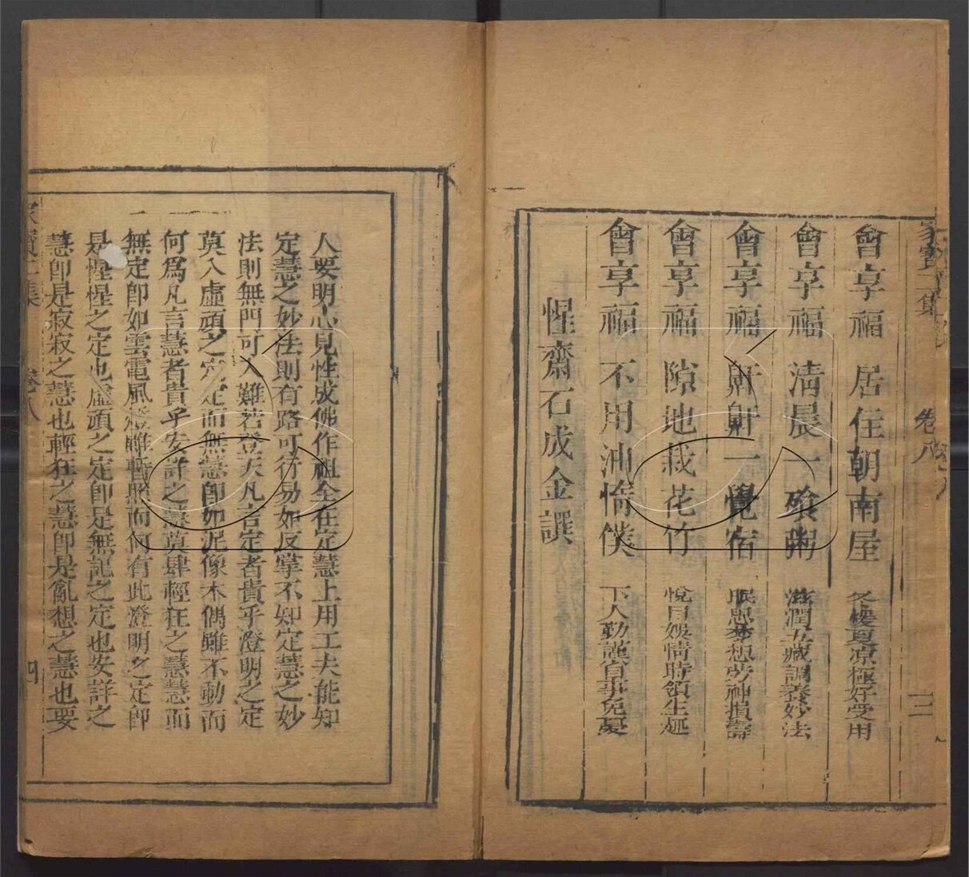 家寶二集 卷八 三
會享福 居住朝南屋 冬煖夏凉極好受用
會享福 清晨一飱粥 滋潤五臟調養妙法
會享福 鼾鼾一覺宿 眠思夢想勞神損壽
會享福 隙地栽花竹 悅目娛情時領生趣
會享福 不用油惰僕 下人勤謹百事免憂
惺齋石成金譔
人要明心見性成佛作祖全在定慧上用工夫能知
定慧之妙法則有路可行易如反掌不知定慧之妙
法則無門可入難若登天凡言定者貴乎澄明之定
莫入虛頑之定定而無慧卽如泥像木偶雖不動而
何爲凡言慧者貴乎安詳之慧莫肆輕狂之慧慧而
無定卽如雲電風燈雖暫照而何有此澄明之定卽
是惺惺之定也虛頑之定卽是無記之定也安詳之
慧卽是寂寂之慧也輕狂之慧卽是亂想之慧也要
家寶二集 卷八 四